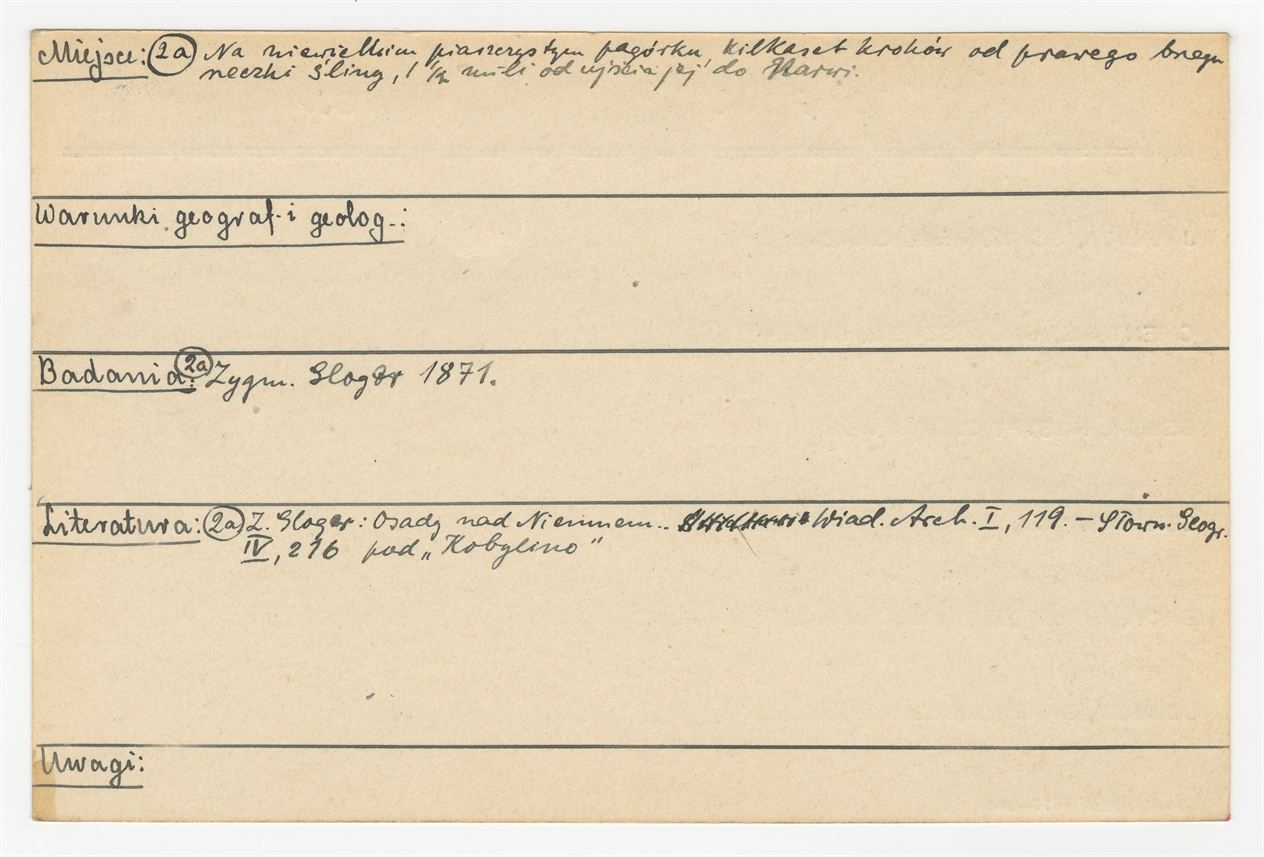 Miejsce: (2a) Na niewielkim piaszczystym pagórku, kilkaset kroków od prawego brzegu
rzeczki Śliny, 1 mili od ujścia jej do Narwi.
Warunki geograf. i geolog.:
Badania: (2a) Zygm. Gloger 1871.
Literatura: (2a) Z. Gloger: Osady nad Niemnem.. Wiad. Arch. I, 119. – Słown. Geogr.
IV, 216 pod „Kobylino"
Uwagi: